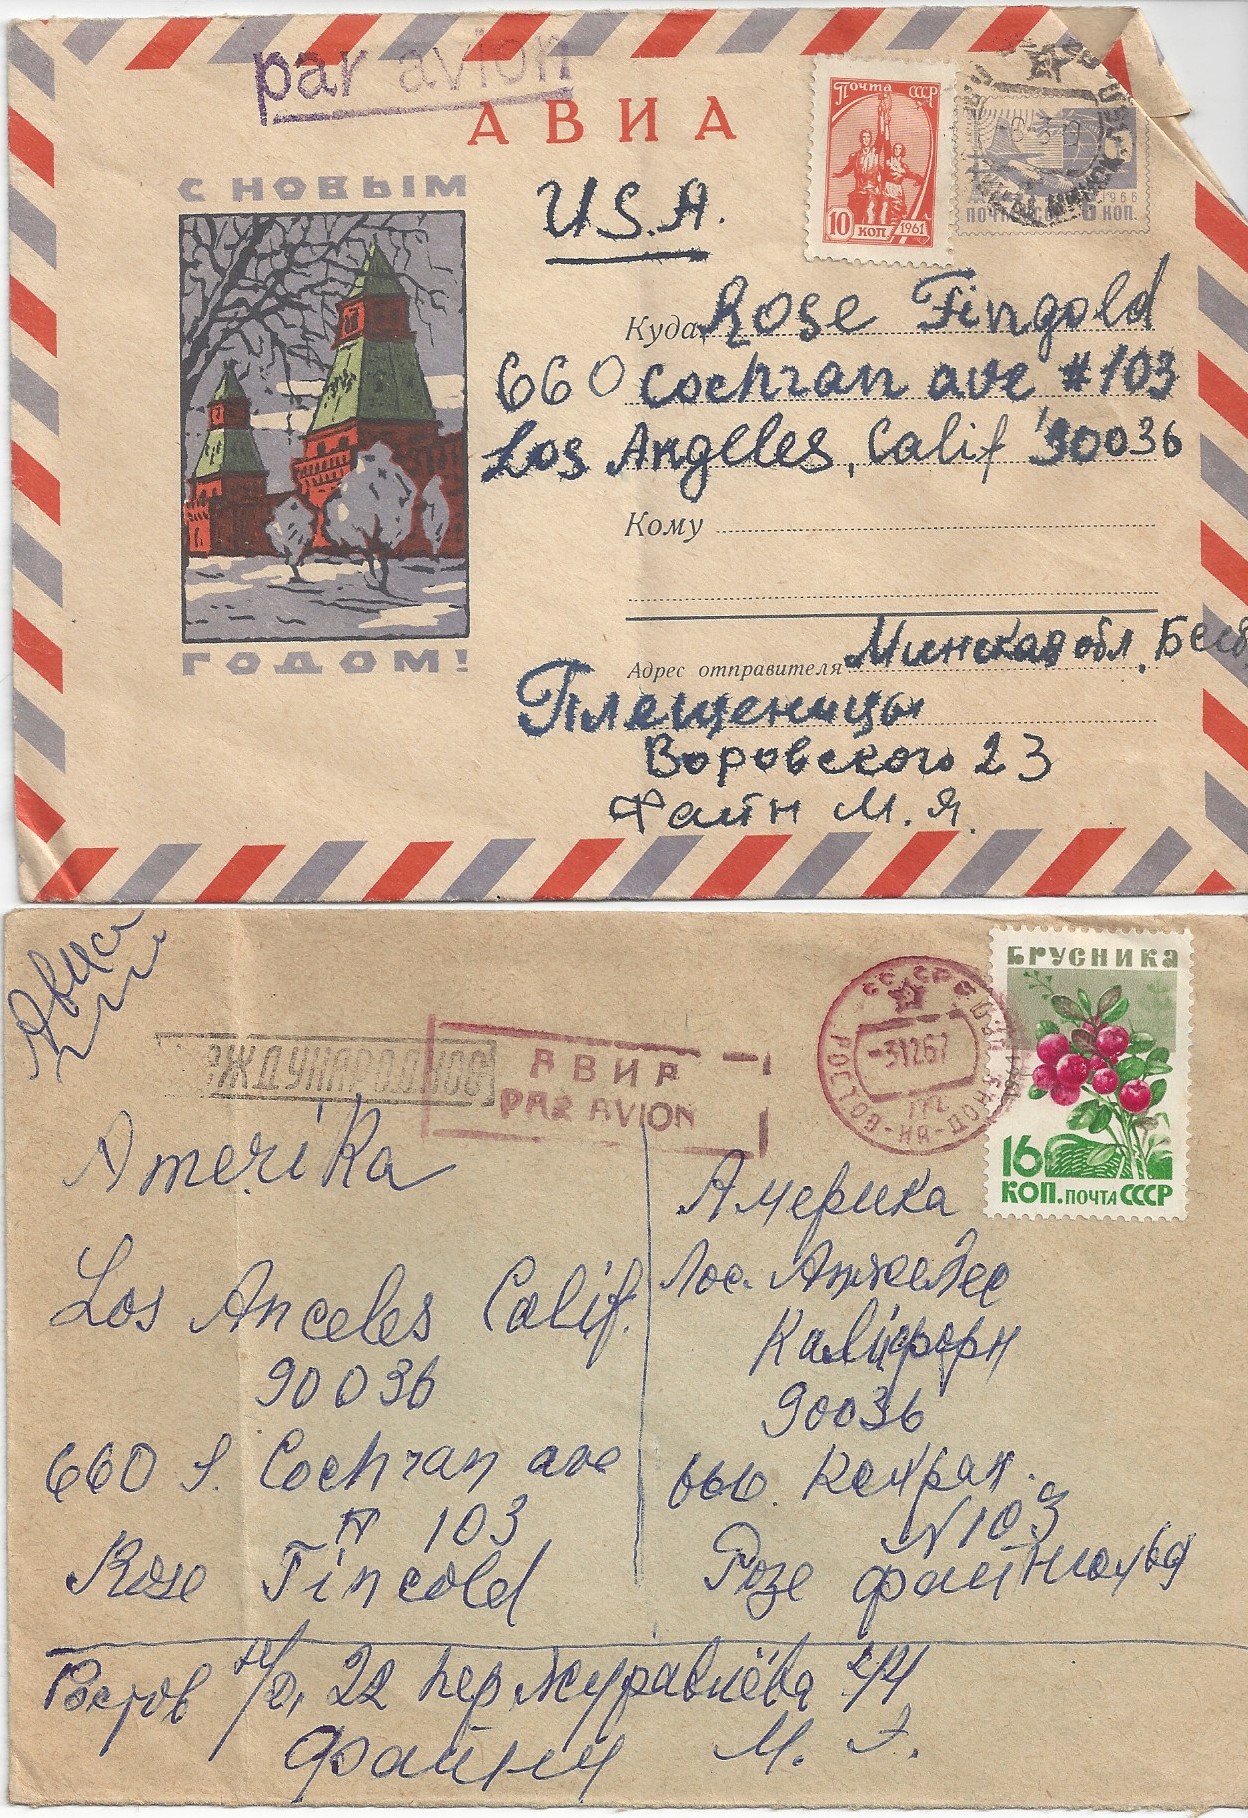 par avion
АВИА
С НОВЫМ
ГОДОМ!
Почта СССР
10 КОП. 1961
1966
6 КОП.
U.S.A.
Куда Rose Fingold
660 Cochran ave #103
Los Angeles, Calif 90036
Кому
Адрес отправителя Минская обл.
Плещеницы
Воровского 23
Файн М. Я.
Авиа
МЕЖДУНАРОДНОЕ
АВИА
PAR AVION
СССР
РОСТОВ-НА-ДОНУ
-31267
БРУСНИКА
16
КОП. ПОЧТА СССР
Amerika
Los Anceles Calif.
90036
660 S. Cochran ave
N 103
Rose Fincold
Америка
Лос. Анжелес
Калифорн
90036
660. Кохран.
N 103
Розе Файнгольд
Ростов н/д, 22 пер Журавлёва
М.